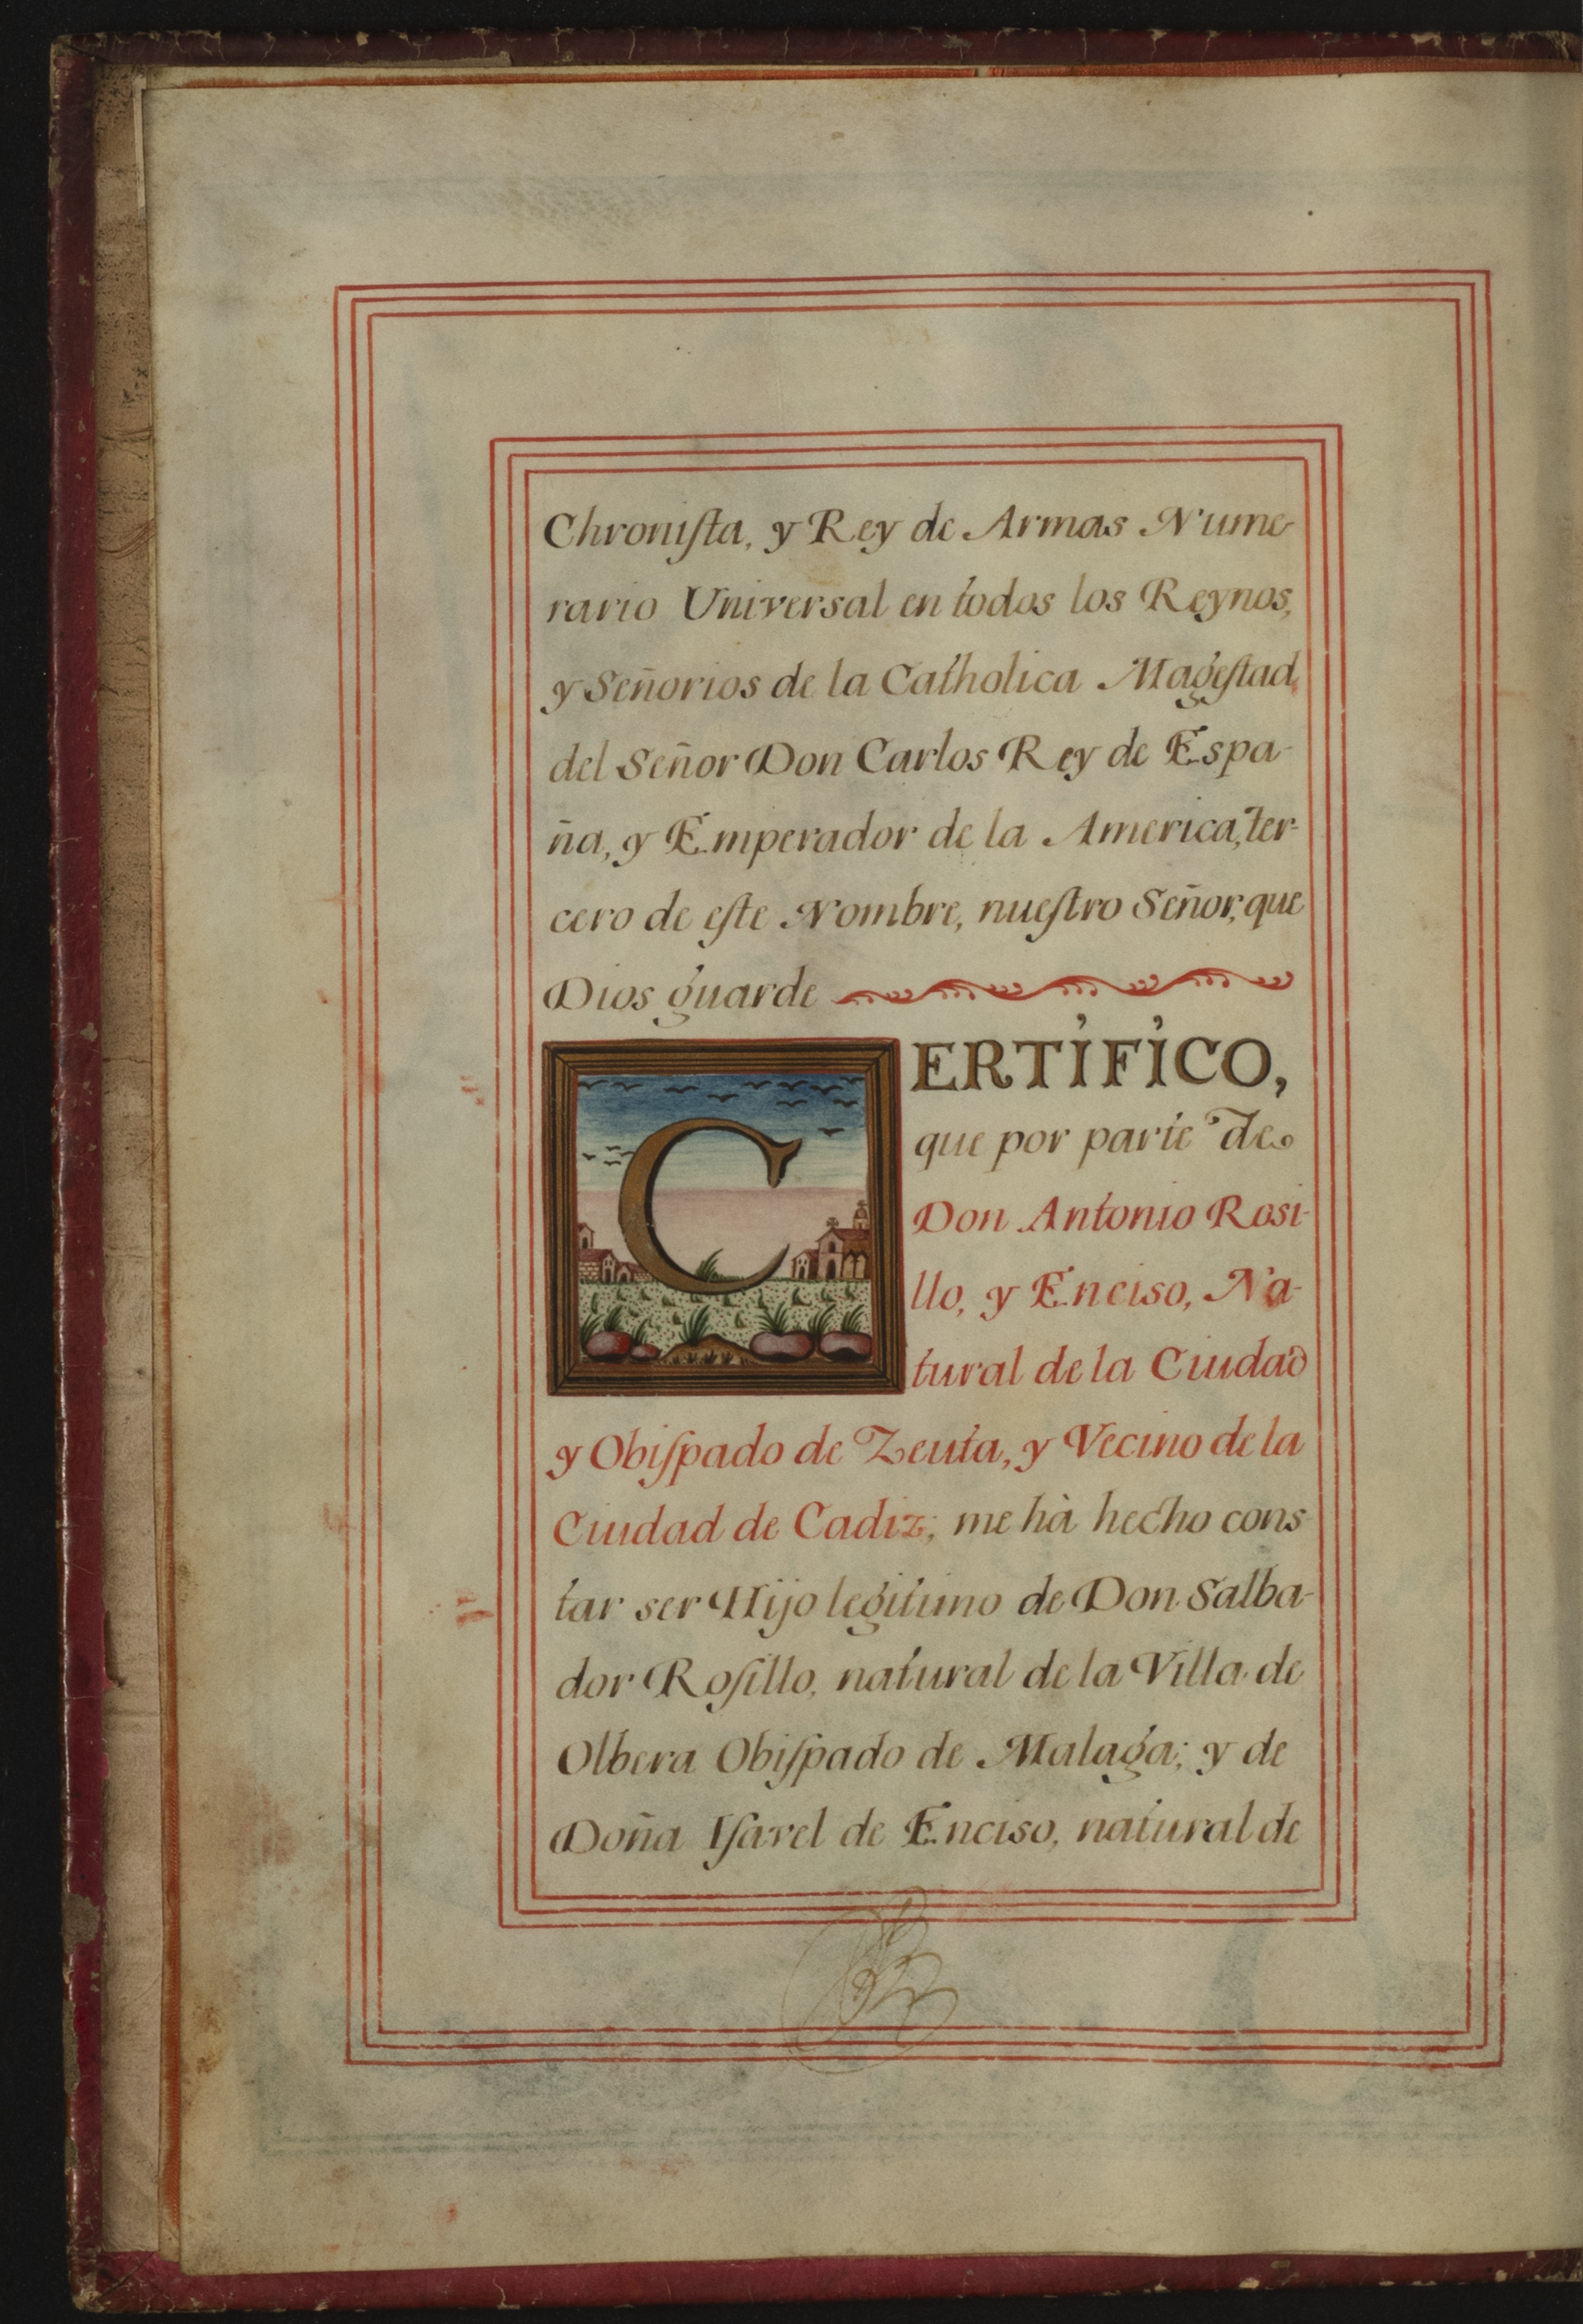 Chroniſta, y Rey de Armas Nume-
rario Universal en todos los Reynos,
y Señorios de la Catholica Mageſtad,
del Señor Don Carlos Rey de Espa-
ña, y Emperador de la America, ter-
cero de eſte Nombre, nueſtro Señor, que
Dios guarde
CERTIFICO,
que por parte de
Don Antonio Rosi-
llo, y Enciso, Na-
tural de la Ciudad
y Obiſpado de Zeuta, y Vecino de la
Ciudad de Cadiz; me hà hecho cons-
tar ser Hijo legitimo de Don Salba-
dor Roſillo, natural de la Villa de
Olbera Obiſpado de Malaga; y de
Doña Iſavel de Enciso, natural de